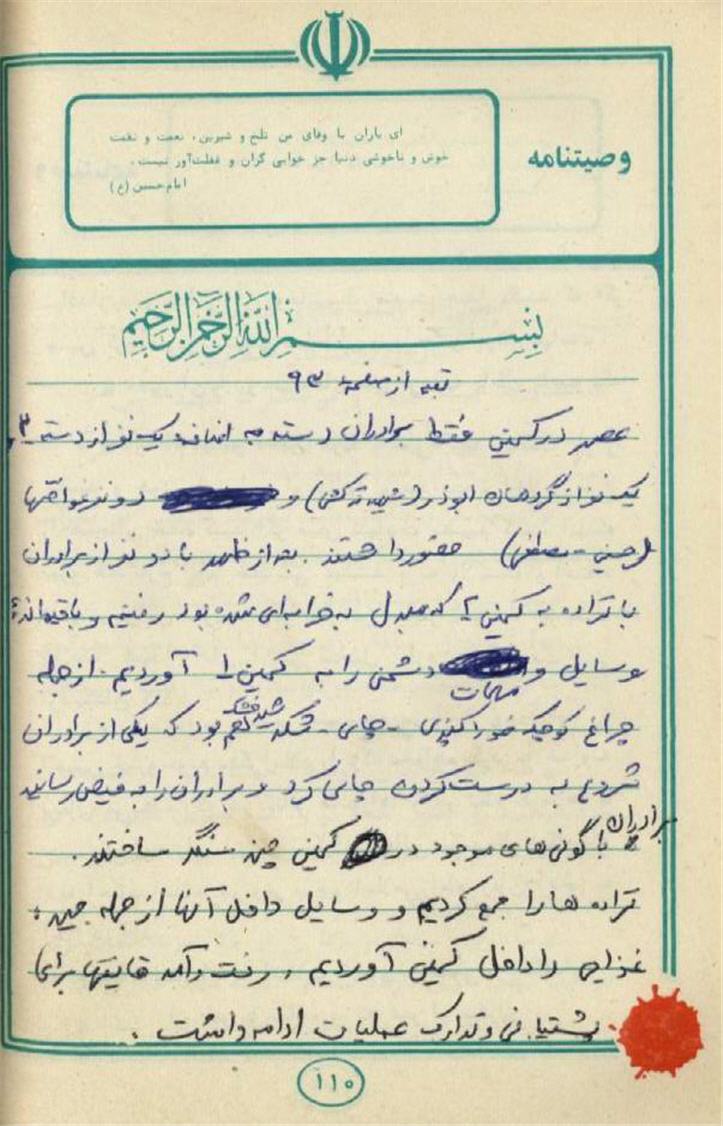 ای یاران با وفای من تلخ و شیرین، نعمت و نقمت
خوش و ناخوشی دنیا جز خوابی گران و غفلت‌آور نیست.
امام حسین (ع)
وصیتنامه
بسم الله الرحمن الرحیم
بقیه از صفحه ۹۳
عصر در کمین فقط برادران دسته به اضافه یک نفر از دسته ۳،
یک نفر از گردهان ابوذر (شهید ترکش) و دو نفر غواصها
(حسینی - مصطفی) حضور داشتند. بعد از ظهر با دو نفر از برادران
با تراده به کمین ۲ که مبدل به خرابه‌ای شده بود رفتیم و باقیمانده
وسایل و مهمات دشمن را به کمین ۱ آوردیم. از جمله
چراغ کوچک خوراکپزی - چای - شکر شیر خشک هم بود که یکی از برادران
شروع به درست کردن چای کرد و برادران را به فیض رسانید
برادران با گونی‌های موجود در کمین چند سنگر ساختند.
تراده ها را جمع کردیم و وسایل داخل آنها از جمله جیره
غذایی را داخل کمین آوردیم. رفت و آمد قایقها برای
پشتیبانی و تدارک عملیات ادامه داشت.
۱۱۰